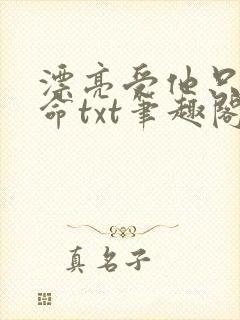 漂亮受他只
命txt笔趣阁
真名子